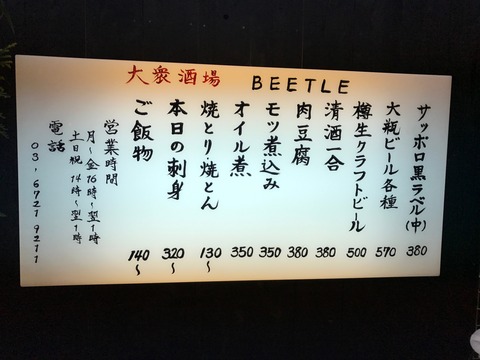 大衆酒場 BEETLE
サッポロ黒ラベル(中) 380
大瓶ビール各種 570
樽生クラフトビール 500
清酒一合 380
肉豆腐 380
モツ煮込み 350
オイル煮 350
焼とり・焼とん 130〜
本日の刺身 320〜
ご飯物 140〜
営業時間
月〜金 16時〜翌1時
土日祝 14時〜翌1時
電話
03,6721 9211